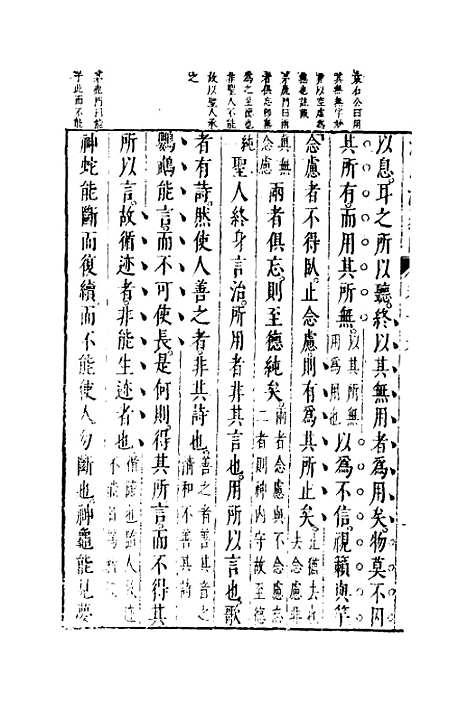 袁石公曰用
其無無字妙
茅鹿門曰兩
者俱忘卽無
爲之至德也
非聖人不能
故以聖人承
之
茅鹿門曰能
于此而不能
以息耳之所以聽終以其無用者爲用矣物莫不因
其所有而用其所無以其所無用爲用也以爲不信視籟與竽
念慮者不得臥止念慮則有爲其所止矣止德去也去念慮非
眞無念慮兩者俱忘則至德純矣兩者念慮與不念慮忘二者則神內守故至德
純一聖人終身言治所用者非其言也用所以言也歌
者有詩然使人善之者非其詩也善之者善其音之清和不善其詩
鸚鵡能言而不可使長是何則得其所言而不得其
所以言故循迹者非能生迹者也
神蛇能斷而復續而不能使人勿斷也神龜能見夢